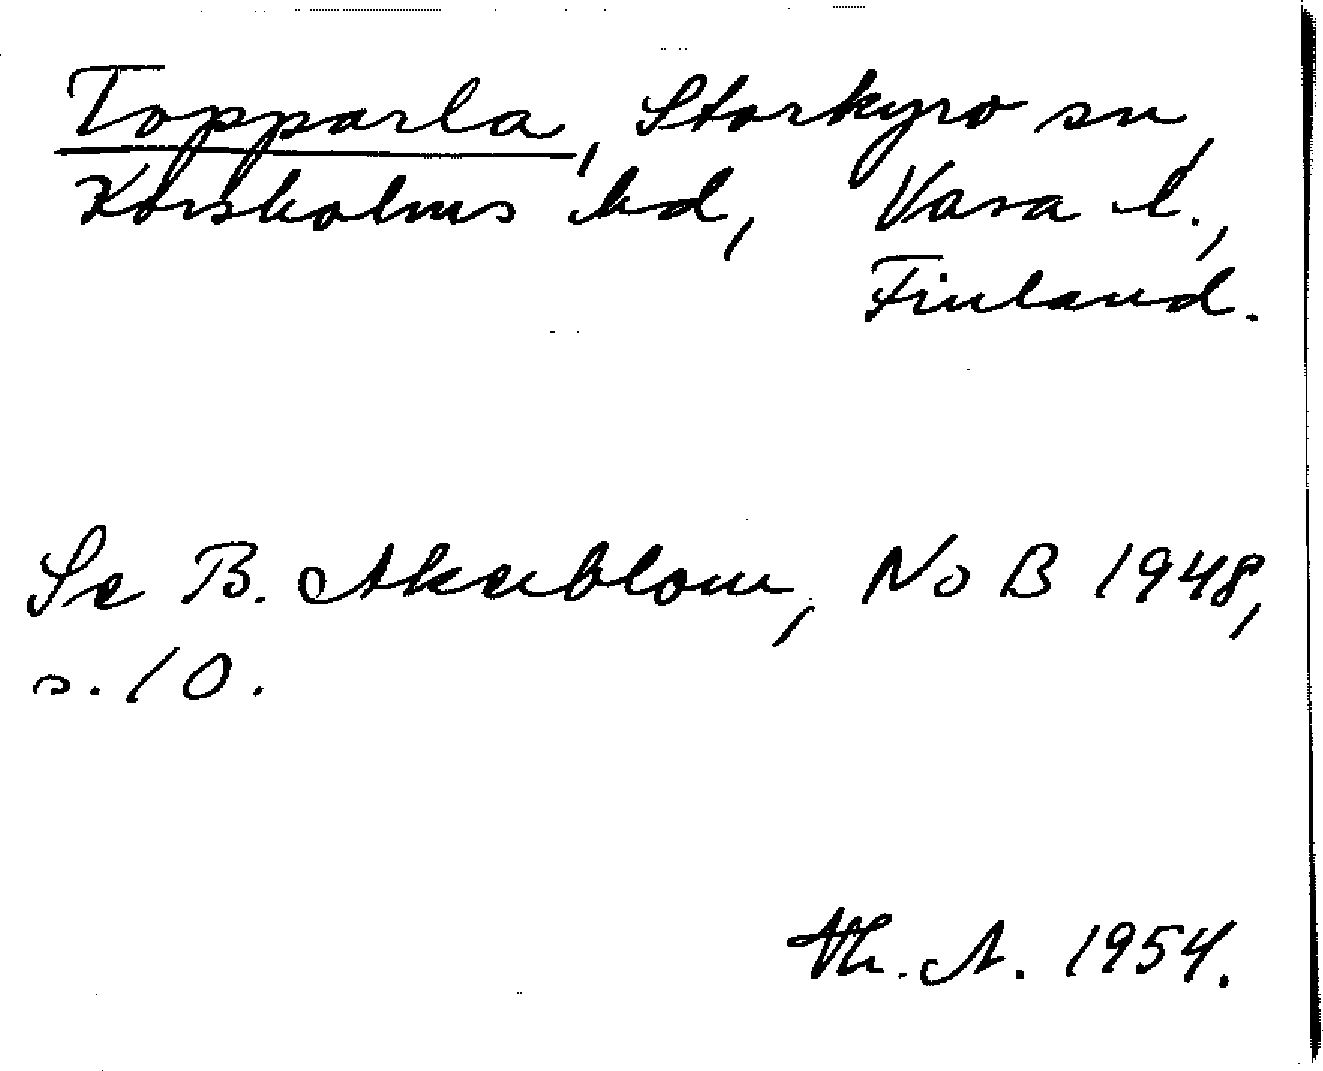 Topparla, Storkyro sn,
Korsholms hd, Vasa l.,
Finland.
Se B. Åkerblom, NoB 1948,
s. 10.
Th. A. 1954.